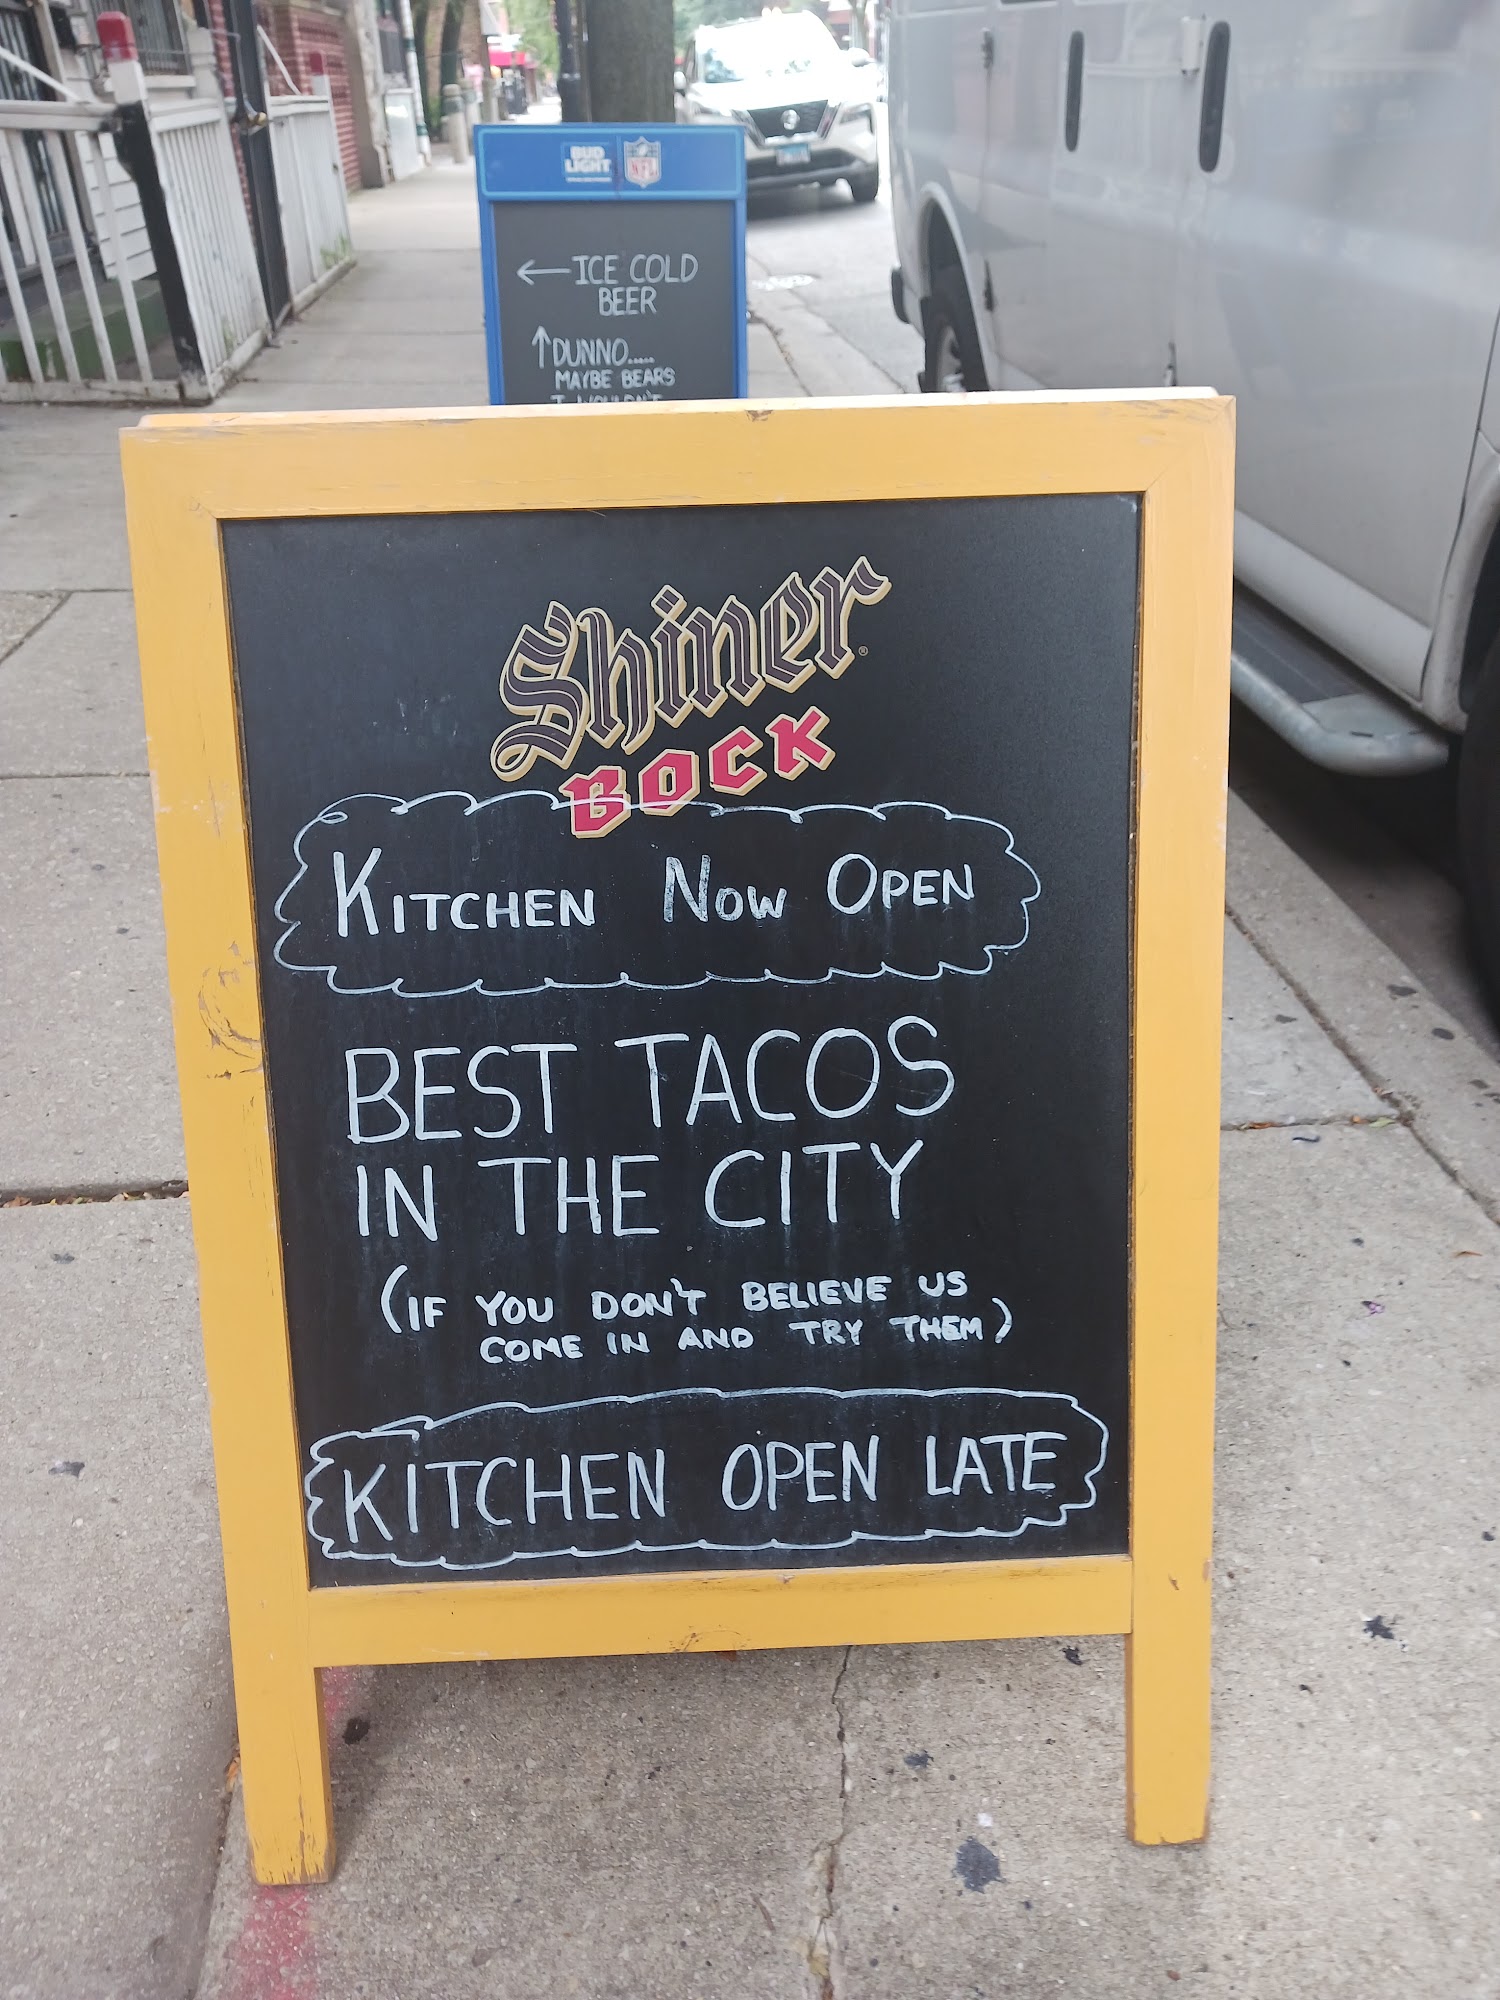 BUD LIGHT
NFL
← ICE COLD
BEER
↑ DUNNO.....
MAYBE BEARS
I WOULDN'T
Shiner®
BOCK
KITCHEN NOW OPEN
BEST TACOS
IN THE CITY
(IF YOU DON'T BELIEVE US
COME IN AND TRY THEM)
KITCHEN OPEN LATE